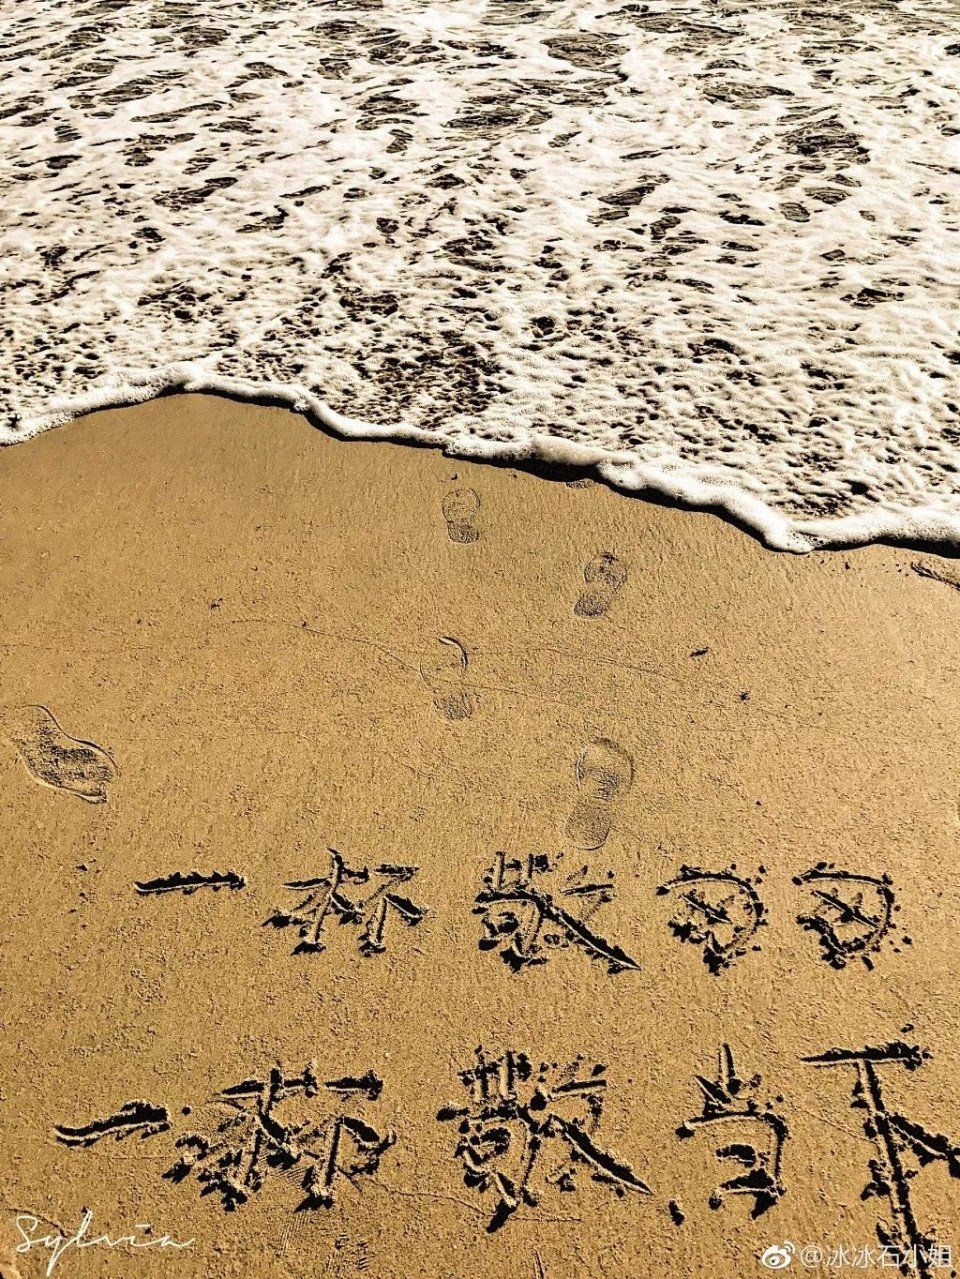 一杯敬
一杯敬当下
Sylvia
@冰冰石小姐